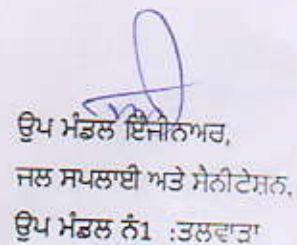 ਉਪ ਮੰਡਲ ਇੰਜੀਨਅਰ,
ਜਲ ਸਪਲਾਈ ਅਤੇ ਸੈਨੀਟੇਸ਼ਨ,
ਉਪ ਮੰਡਲ ਨੰ1 :ਤਲਵਾੜਾ